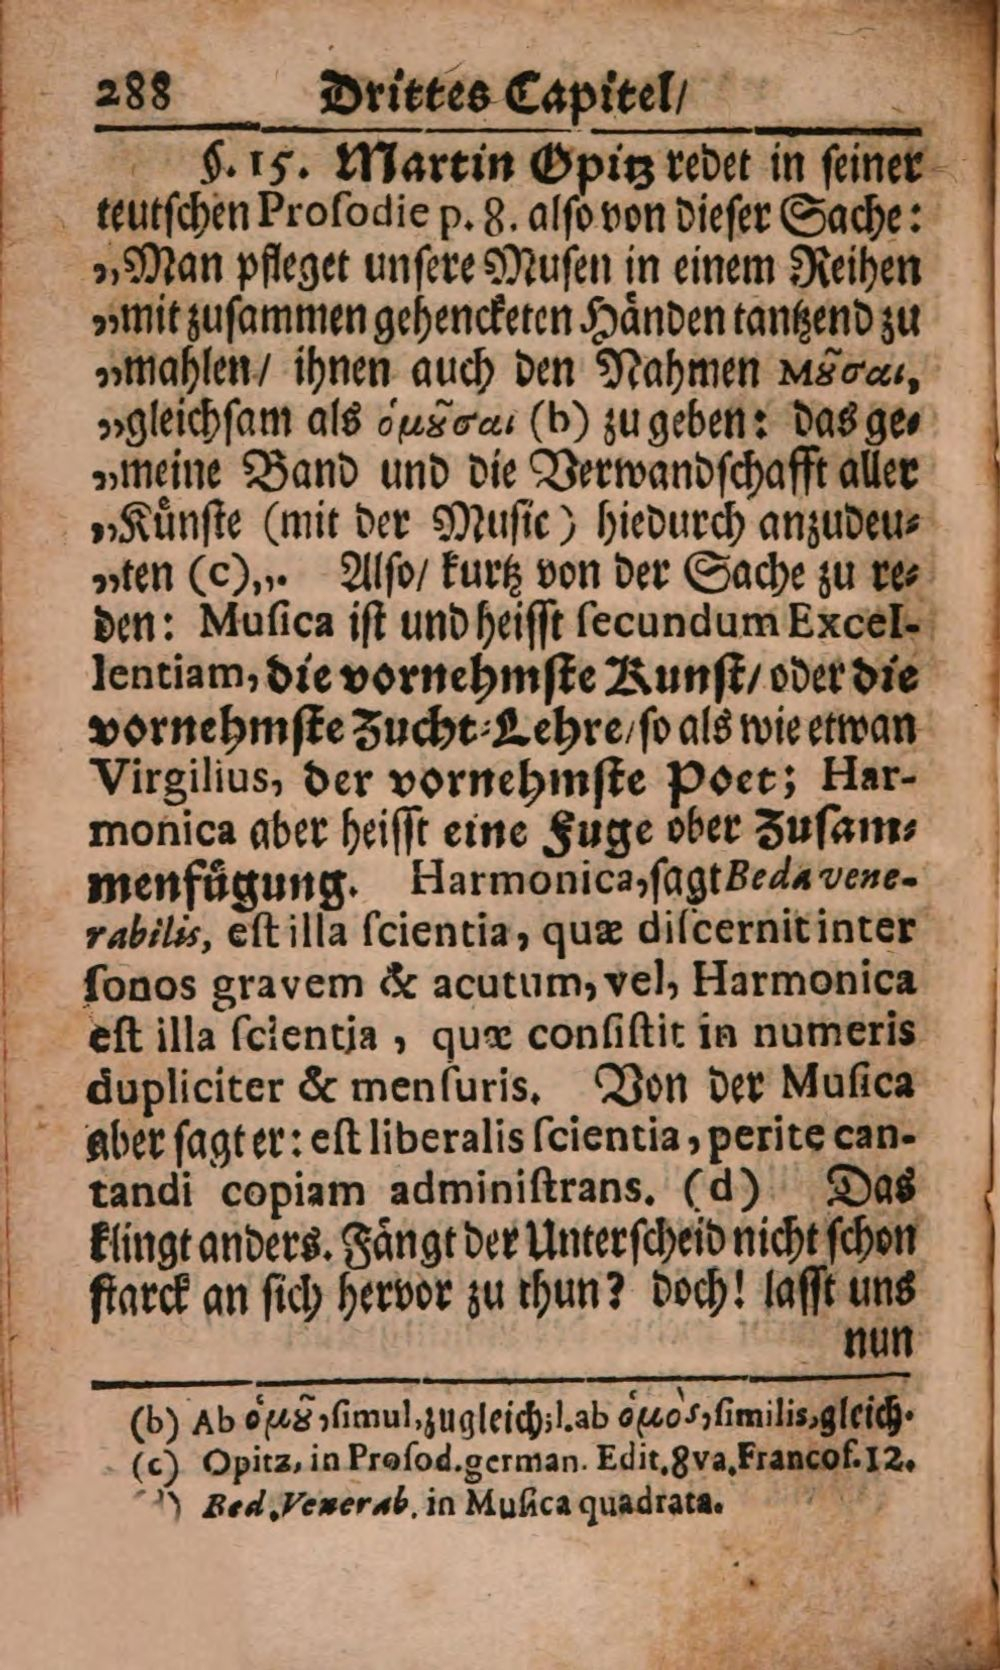 288 Drittes Capitel/
§. 15. Martin Opitz redet in seiner
teutschen Prosodie p. 8. also von dieser Sache:
„Man pfleget unsere Musen in einem Reihen
„mit zusammen gehencketen Händen tantzend zu
„mahlen/ ihnen auch den Nahmen Μȣ͂σαι,
„gleichsam als ὁμȣ͂σαι (b) zu geben: das ge⸗
„meine Band und die Verwandschafft aller
„Kuͤnste (mit der Music) hiedurch anzudeu⸗
„ten (c),„. Also/ kurtz von der Sache zu re⸗
den: Muſica ist und heisst ſecundum Excel-
lentiam, die vornehmste Kunst/ oder die
vornehmste Zucht⸗Lehre/ so als wie etwan
Virgilius, der vornehmste Poet; Har-
monica aber heisst eine Fuge ober Zusam⸗
menfuͤgung. Harmonica, sagt Beda vene-
rabilis, eſt illa ſcientia, quæ diſcernit inter
ſonos gravem & acutum, vel, Harmonica
eſt illa ſcientia, quæ conſiſtit in numeris
dupliciter & menſuris. Von der Muſica
aber sagt er: eſt liberalis ſcientia, perite can-
tandi copiam adminiſtrans. (d) Das
klingt anders. Fängt der Unterscheid nicht schon
starck an sich hervor zu thun? doch! lasst uns
nun
(b) Ab ὁμȣ͂, ſimul, zugleich; l. ab ὁμὸς, ſimilis, gleich.
(c) Opitz, in Proſod. german. Edit. 8va, Francof. 12.
) Bed. Venerab. in Muſica quadrata.